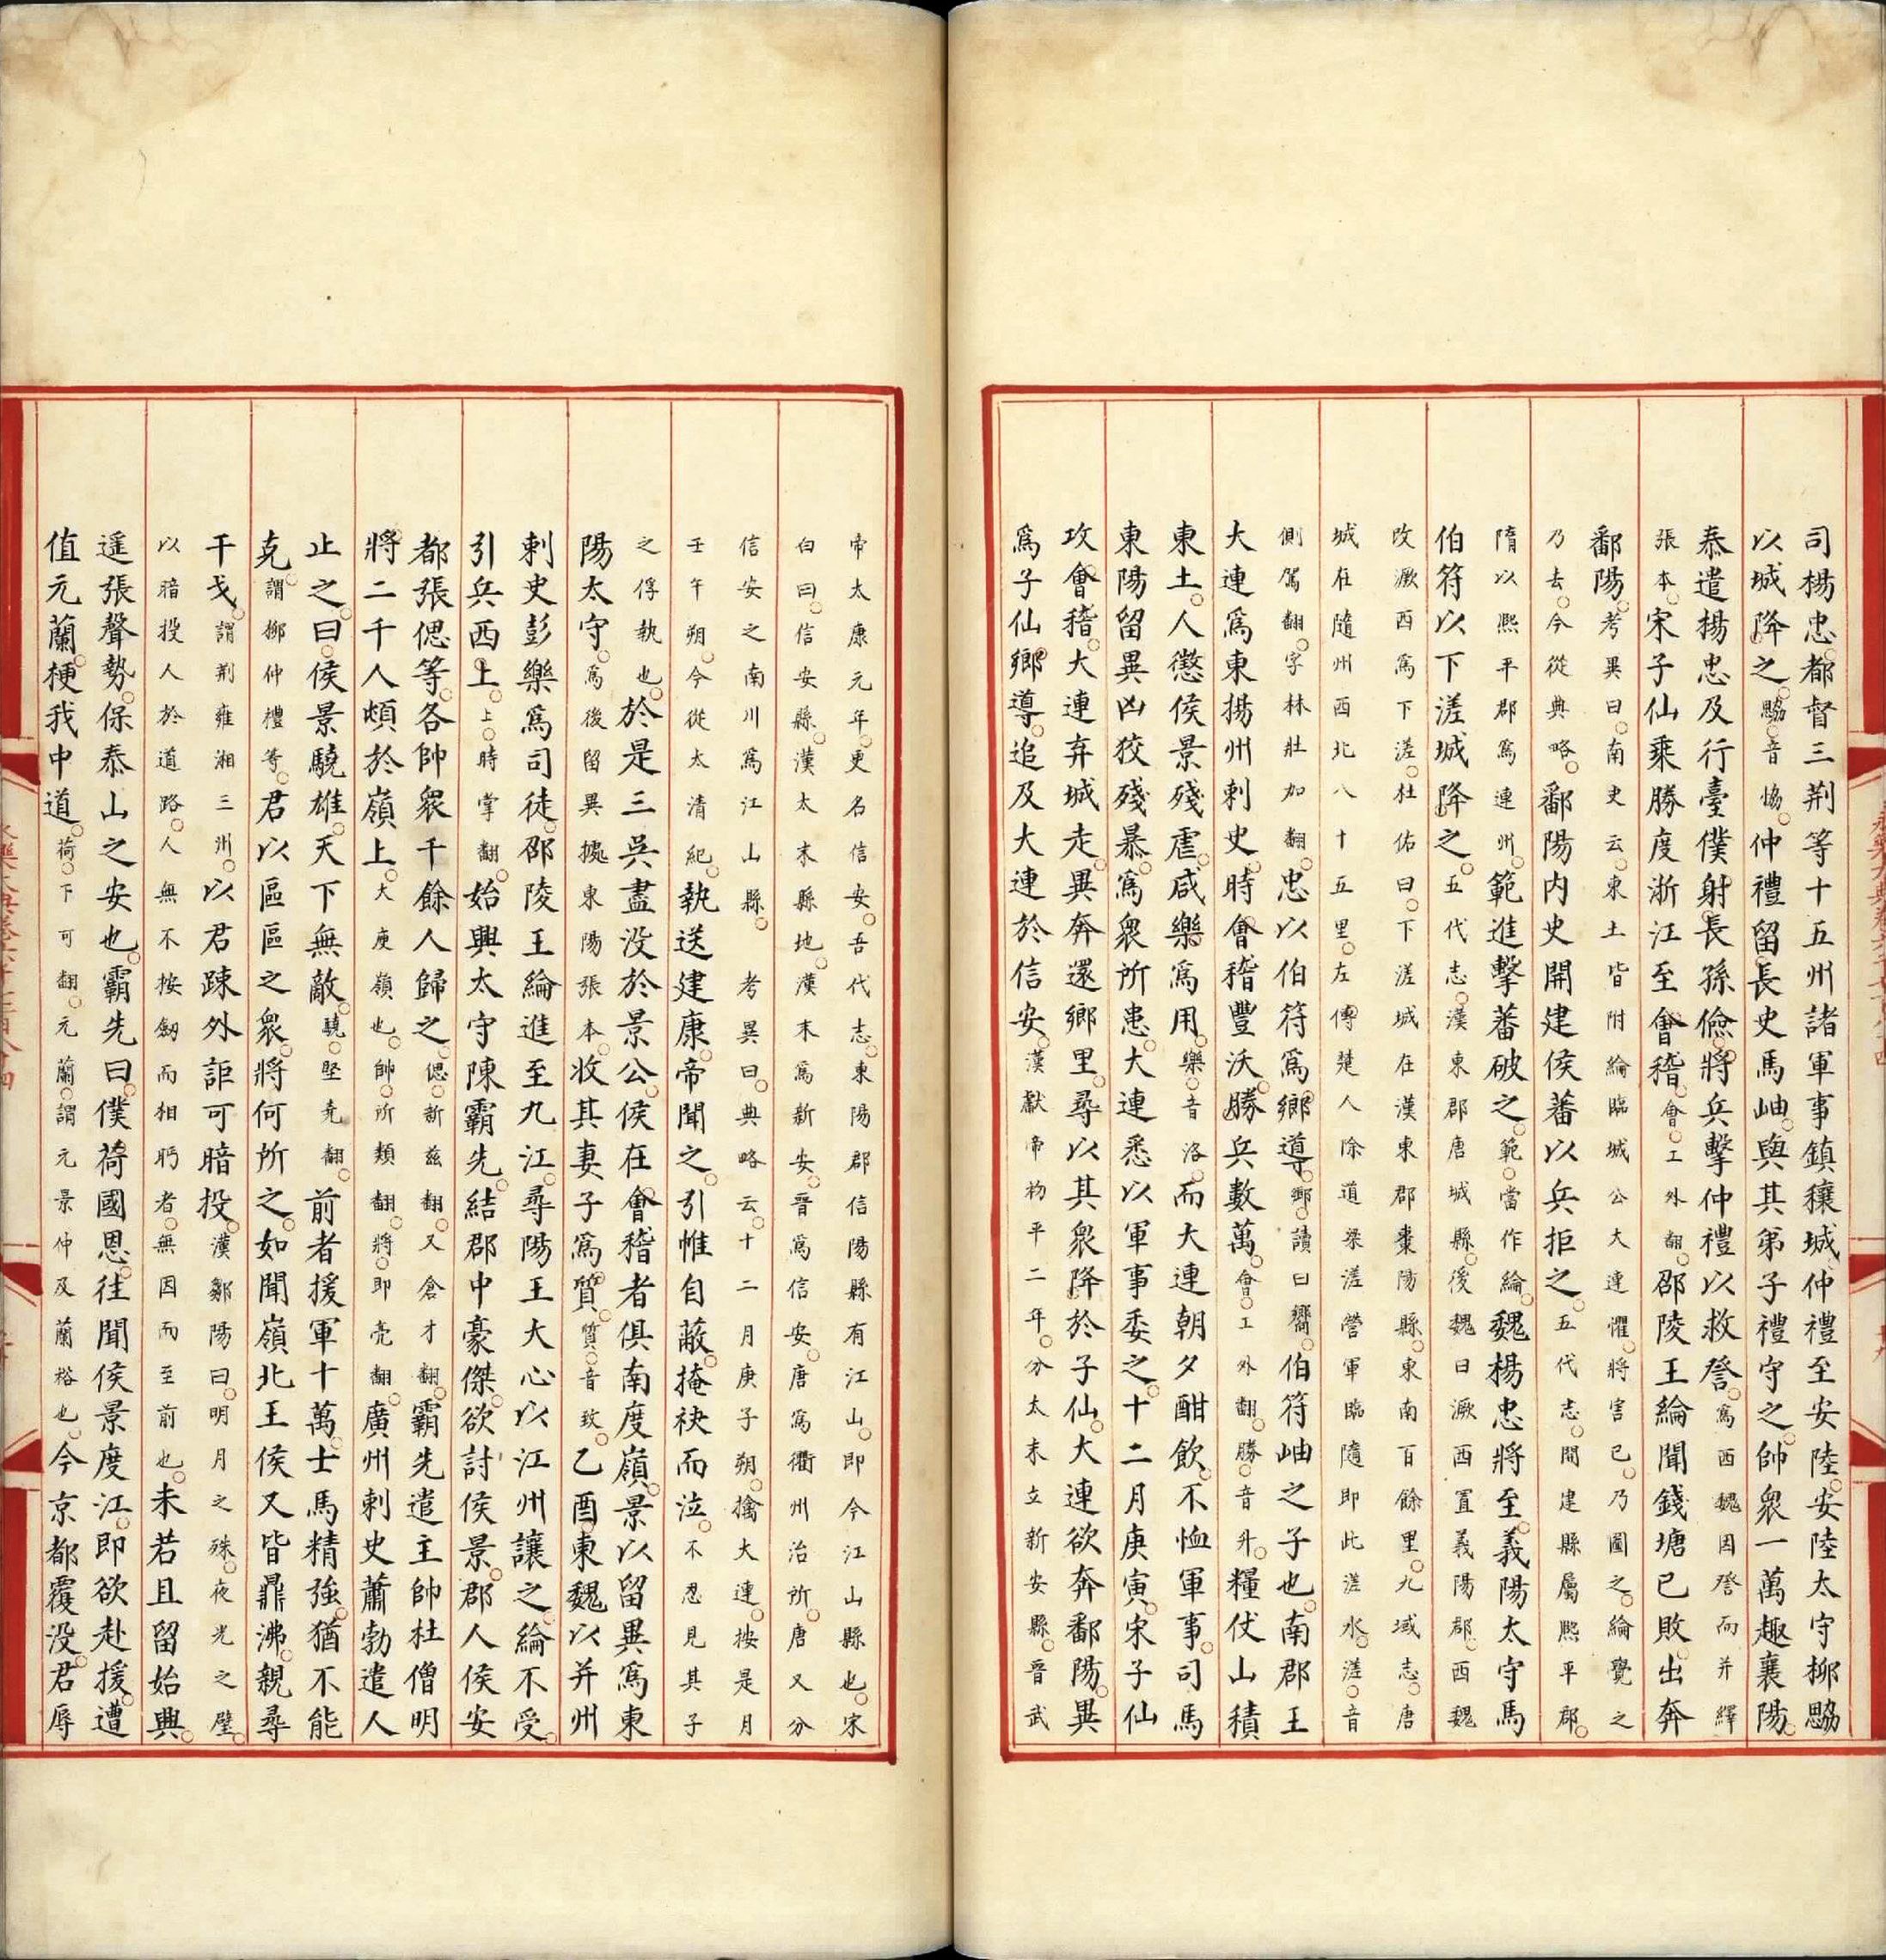 司楊忠都督三荊等十五州諸軍事鎮穰城仲禮至安陸安陸太守柳勰
以城降之勰音恊仲禮留長史馬岫與其弟子禮守之帥衆一萬趣襄陽
泰遣楊忠及行臺僕射長孫儉將兵擊仲禮以救詧爲西魏因詧而并繹
張本宋子仙乘勝度浙江至會稽會工外翻邵陵王綸聞錢塘已敗出奔
鄱陽考異曰南史云東土皆附綸臨城公大連懼將害已乃圖之綸覺之
乃去今從典略鄱陽內史開建侯蕃以兵拒之五代志開建縣屬熙平郡
隋以熙平郡爲連州範進擊蕃破之範當作綸魏楊忠將至義陽太守馬
伯符以下溠城降之五代志漢東郡唐城縣後魏曰㵐西置義陽郡西魏
改㵐西爲下溠杜佑曰下溠城在漢東郡棗陽縣東南百餘里九域志唐
城在隨州西北八十五里左傳楚人除道梁溠營軍臨隨即此溠水溠音
側駕翻字林壯加翻忠以伯符爲鄉導鄉讀曰嚮伯符岫之子也南郡王
大連爲東揚州刺史時會稽豐沃勝兵數萬會工外翻勝音升糧仗山積
東土人懲侯景殘虐咸樂爲用樂音洛而大連朝夕酣飲不恤軍事司馬
東陽留異凶狡殘暴爲衆所患大連悉以軍事委之十二月庚寅宋子仙
攻會稽大連弃城走異奔還鄉里尋以其衆降於子仙大連欲奔鄱陽異
爲子仙鄉導追及大連於信安漢獻帝初平二年分太末立新安縣晉武
帝太康元年更名信安吾代志東陽郡信陽縣有江山即今江山縣也宋
白曰信安縣漢太末縣地漢末爲新安晉爲信安唐爲衢州治所唐又分
信安之南川爲江山縣考異曰典略云十二月庚子朔擒大連按是月
壬午朔今從太清紀執送建康帝聞之引帷自蔽掩袂而泣不忍見其子
之俘執也於是三吳盡没於景公侯在會稽者俱南度嶺景以留異爲東
陽太守爲後留異據東陽張本收其妻子爲質質音致乙酉東魏以并州
刺史彭樂爲司徒邵陵王綸進至九江尋陽王大心以江州讓之綸不受
引兵西上上時掌翻始興太守陳霸先結郡中豪傑欲討侯景郡人侯安
都張偲等各帥衆千餘人歸之偲新兹翻又倉才翻霸先遣主帥杜僧明
將二千人頓於嶺上大庾嶺也帥所類翻將即亮翻廣州刺史蕭勃遣人
止之曰侯景驍雄天下無敵驍堅堯翻前者援軍十萬士馬精強猶不能
克謂柳仲禮等君以區區之衆將何所之如聞嶺北王侯又皆鼎沸親尋
干戈謂荆雍湘三州以君踈外詎可暗投漢鄒陽曰明月之珠夜光之璧
以暗投人於道路人無不按劒而相眄者無因而至前也未若且留始興
遥張聲勢保泰山之安也霸先曰僕荷國恩往聞侯景度江即欲赴援遭
值元蘭梗我中道荷下可翻元蘭謂元景仲及蘭裕也今京都覆没君辱